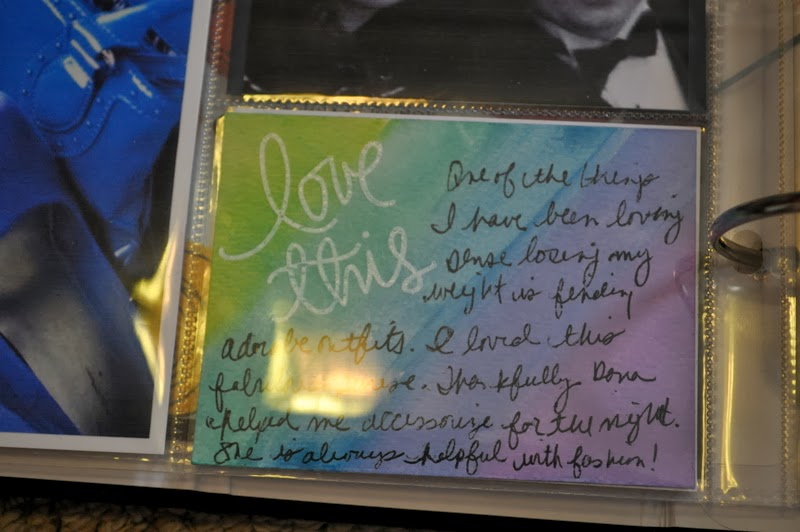 love
this
One of the things
I have been loving
sense losing my
weight is finding
adorabe outfits. I loved this
. Thankfully Dona
helped me accessorize for the night.
She is always helpful with fashion!